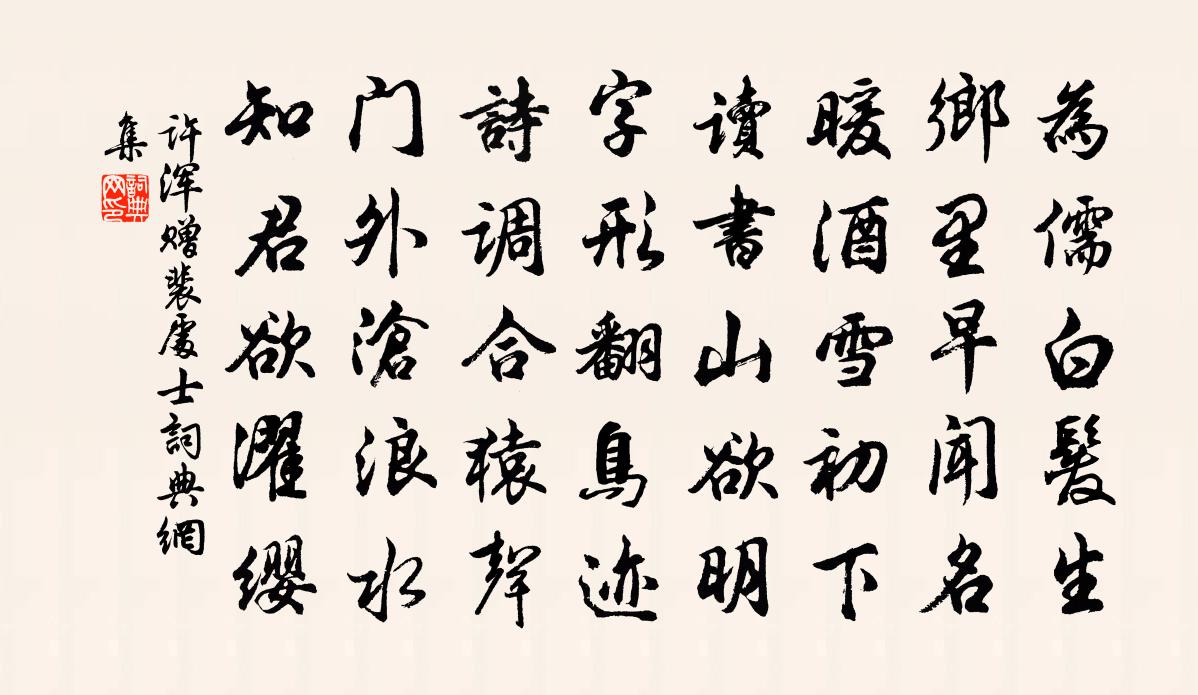 為儒白髮生
鄉里早闻名
暖酒雪初下
讀書山欲明
字形翻鳥迹
詩调合猿聲
门外滄浪水
知君欲濯缨
许浑赠裴處士詞典網
集
詞典網印